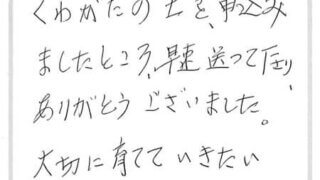 くわがたの土を、申込み
ましたところ、早速送って下り、
ありがとうございました。
大切に育てていきたい